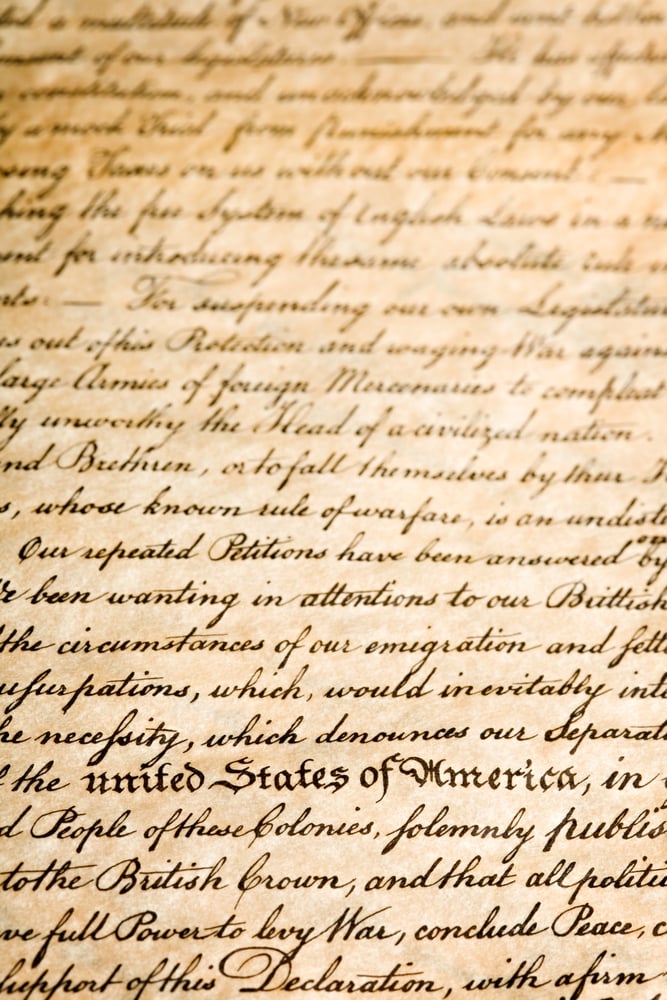 a multitude of New Offices, and sent
of our legislatures. — He has
constitution, and unacknowledged by our
a mock Trial from Punishment for any
Taxes on us without our Consent : —
the free System of English Laws in a
for introducing thesame absolute rule
— For suspending our own
out of his Protection and waging War
large Armies of foreign Mercenaries to compleat
unworthy the Head of a civilized nation.
Brethren, or to fall themselves by their
whose known rule of warfare, is an
Our repeated Petitions have been answered by
been wanting in attentions to our Brittish
the circumstances of our emigration and
usurpations, which, would inevitably
necessity, which denounces our
the united States of America, in
People of these Colonies, solemnly
to the British Crown, and that all
full Power to levy War, conclude Peace,
support of this Declaration, with a firm